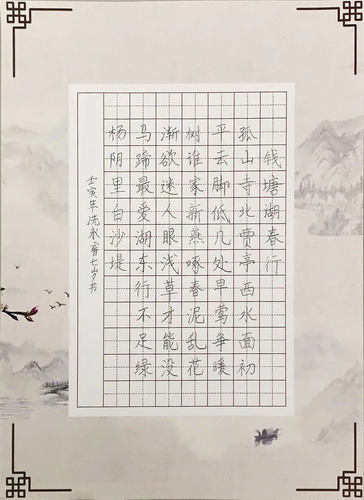 钱塘湖春行
孤山寺北贾亭西水面初
平云脚低几处早莺争暖
树谁家新燕啄春泥乱花
渐欲迷人眼浅草才能没
马蹄最爱湖东行不足绿
杨阴里白沙堤
壬寅年冼永睿七岁书